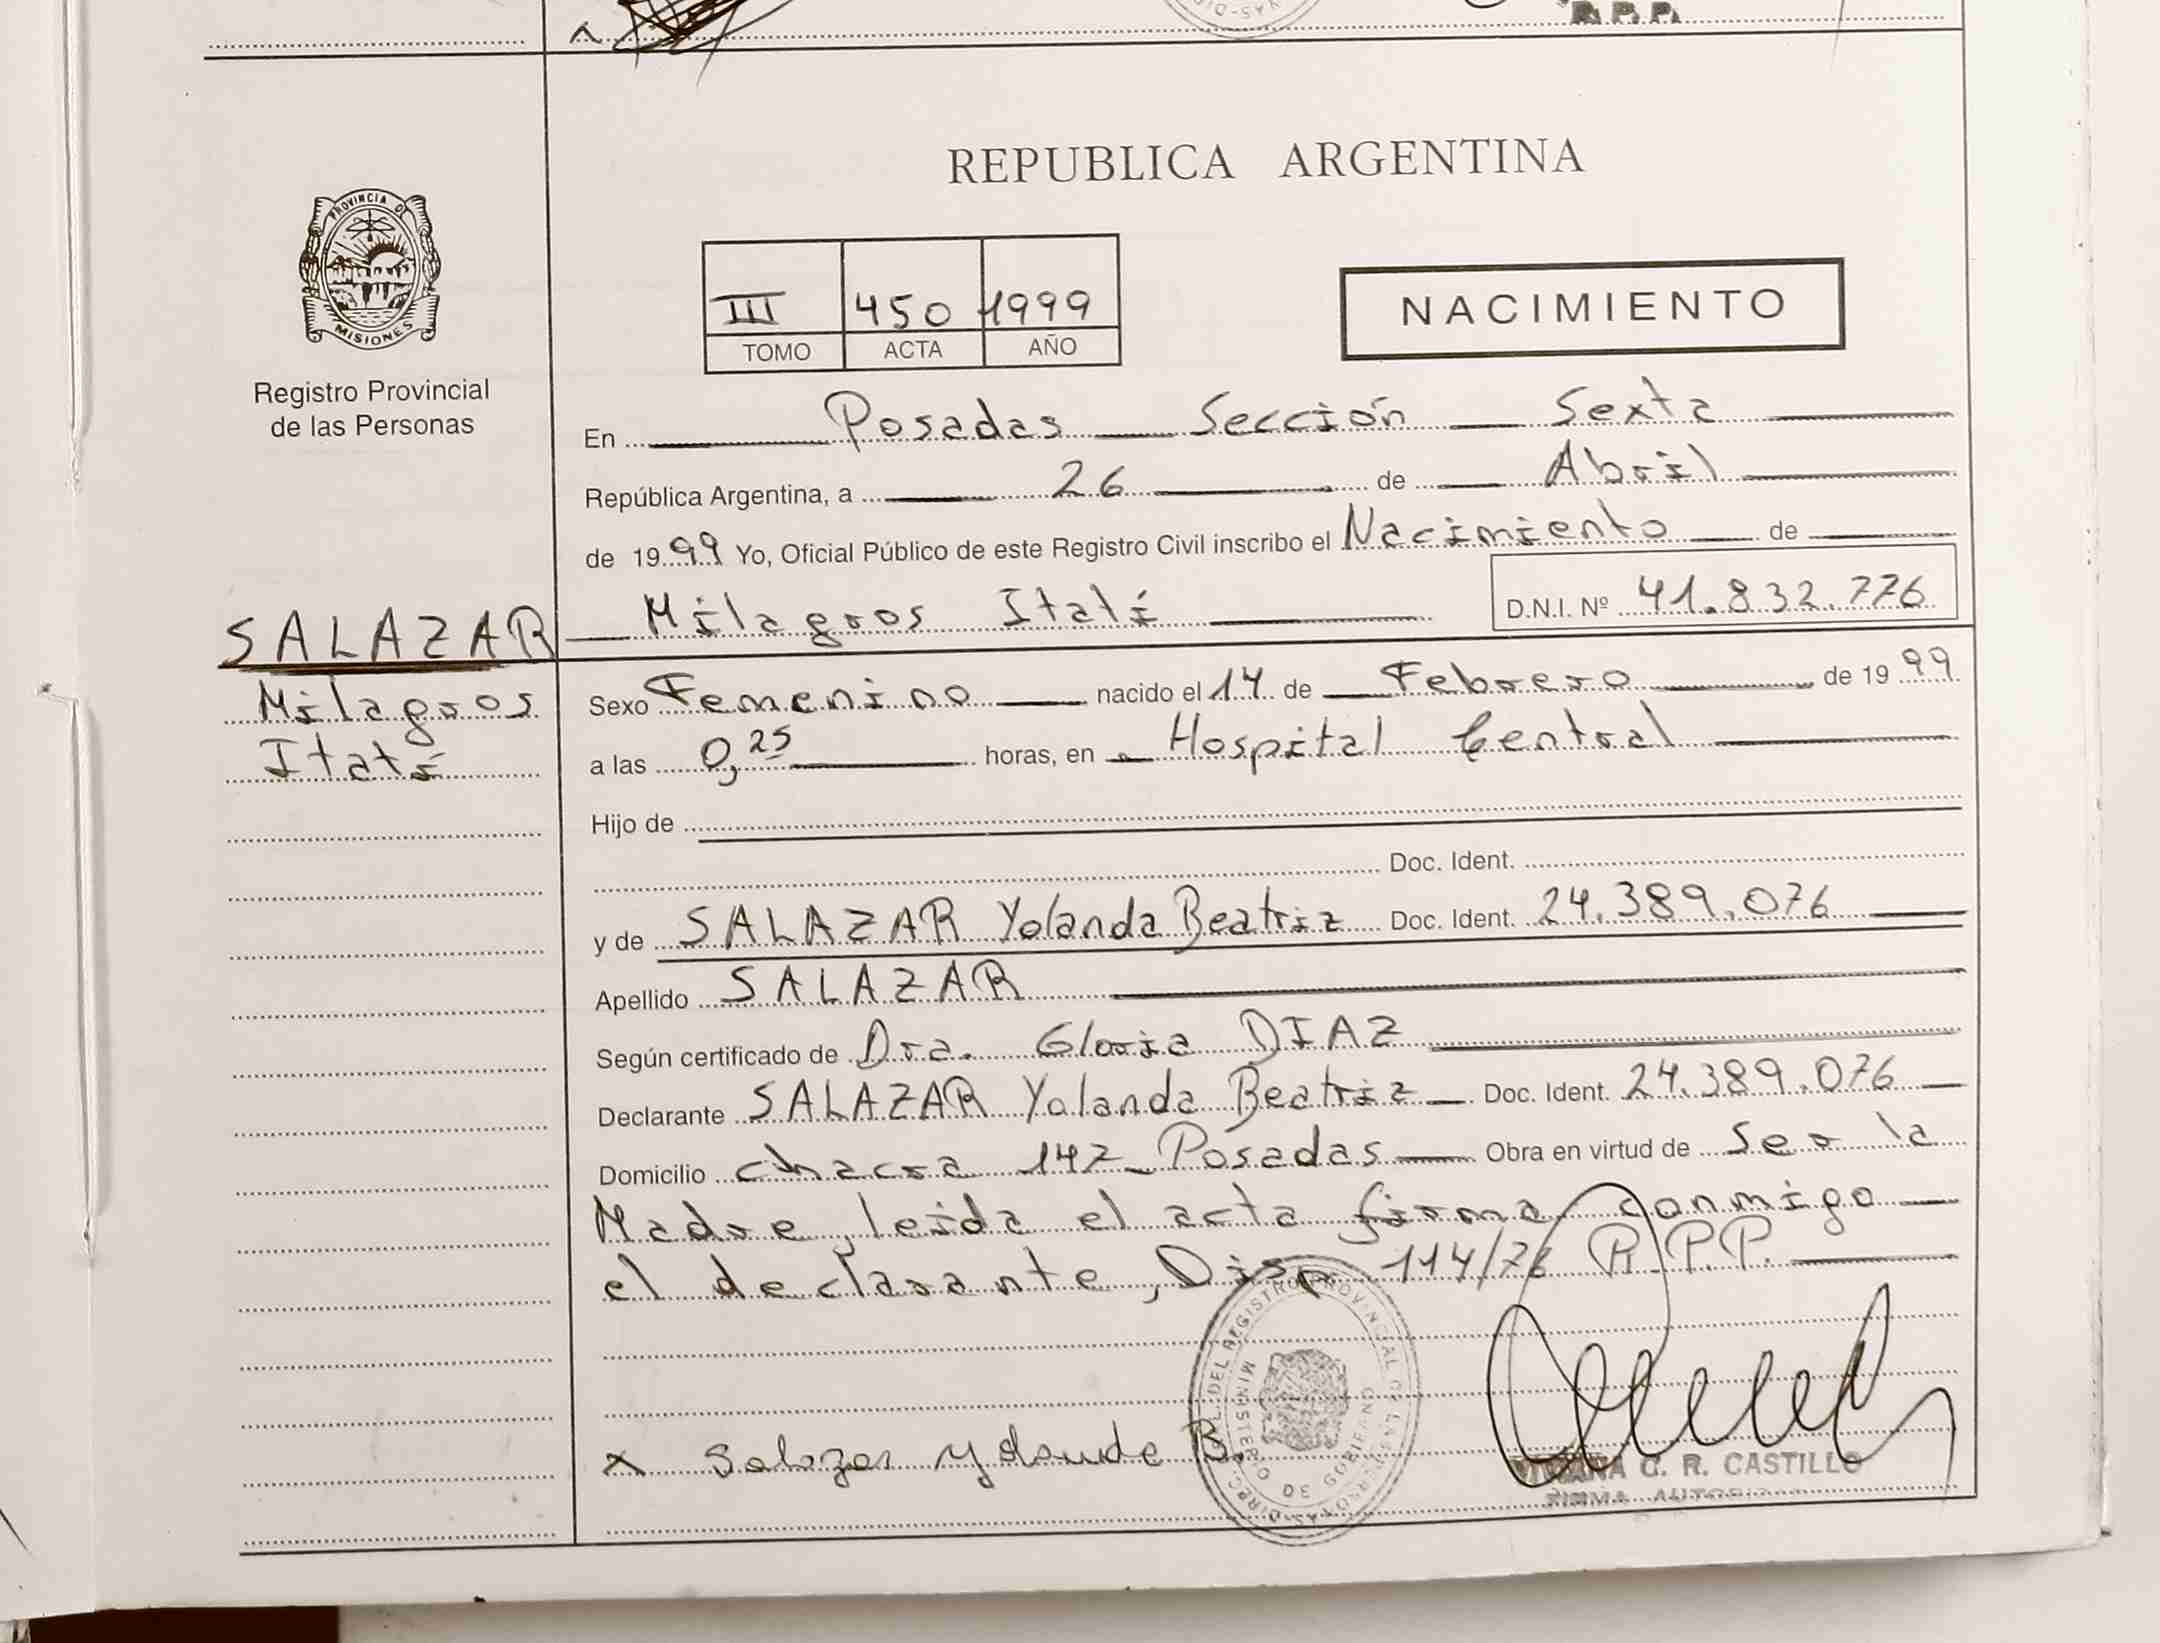 R.P.P.
PROVINCIA DE
MISIONES
Registro Provincial
de las Personas
REPUBLICA ARGENTINA
III 450 1999
TOMO ACTA AÑO
NACIMIENTO
En Posadas Sección Sexta
República Argentina, a 26 de Abril
de 1999 Yo, Oficial Público de este Registro Civil inscribo el Nacimiento de
Milagros Itatí D.N.I. Nº 41.832.776
SALAZAR
Milagros
Itatí
Sexo Femenino nacido el 14 de Febrero de 1999
a las 0,25 horas, en Hospital Central
Hijo de
Doc. Ident.
y de SALAZAR Yolanda Beatriz Doc. Ident. 24.389.076
Apellido SALAZAR
Según certificado de Dra. Gloria DIAZ
Declarante SALAZAR Yolanda Beatriz Doc. Ident. 24.389.076
Domicilio chacra 147 Posadas Obra en virtud de Ser la
Madre, leida el acta firma conmigo
el declarante, Disp 114/76 R.P.P.
x Salazar Yolanda B.
DIREC. DEL REGISTRO PROVINCIAL DE LAS PERSONAS
MINISTERIO DE GOBIERNO
C. R. CASTILLO
FIRMA